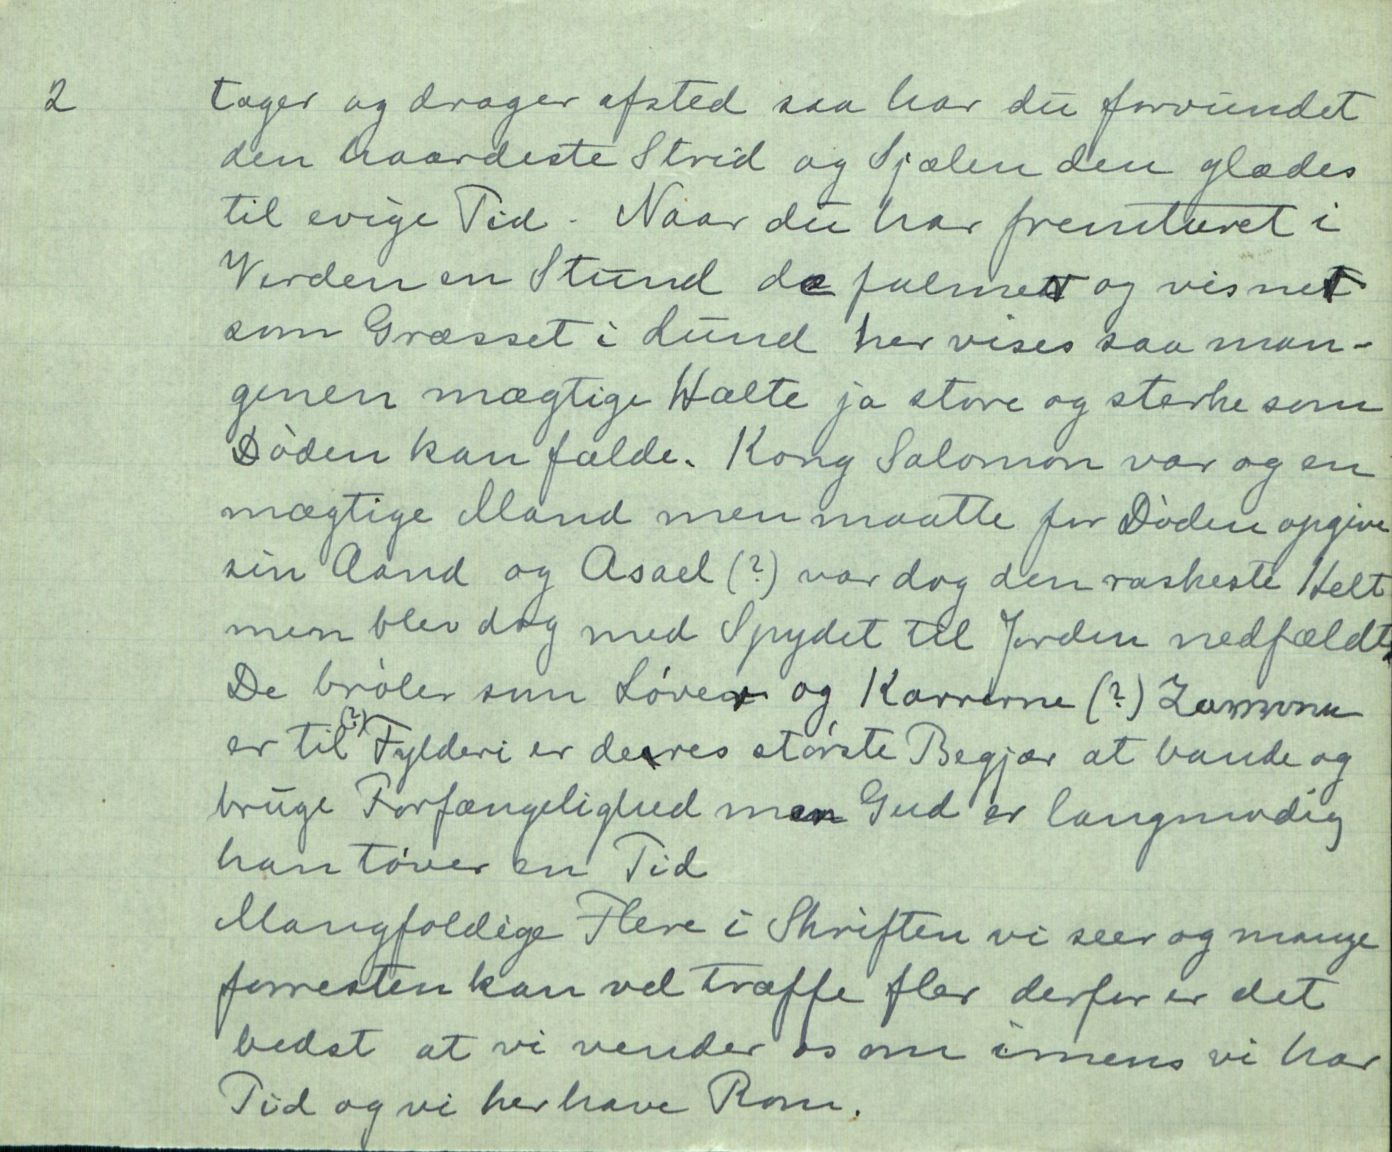 2 tager og drager afsted saa har du forvundet
den haardeste Strid og Sjælen den glædes
til evige Tid. Naar du har fremturet i
Verden en Stund da falmet og visnet
som Græsset i Lund her vises saa man-
genen mægtige Hælte ja store og sterke som
Døden kan fælde. Kong Salomon var og en
mægtige Mand men maatte for Døden opgive
sin Aand og Asael (?) var dog den raskeste Helt
men blev dog med Spydet til Jorden nedfældt.
De brøler som Løver og Karrerne (?)
er til (?) Fylderi er deres største Begjær at bande og
bruge Forfængelighed men Gud er langmodig
han tøver en Tid
Mangfoldige Flere i Skriften vi seer og mange
forresten kan vel træffe fler derfor er det
bedst at vi vender os om imens vi har
Tid og vi her have Rom.